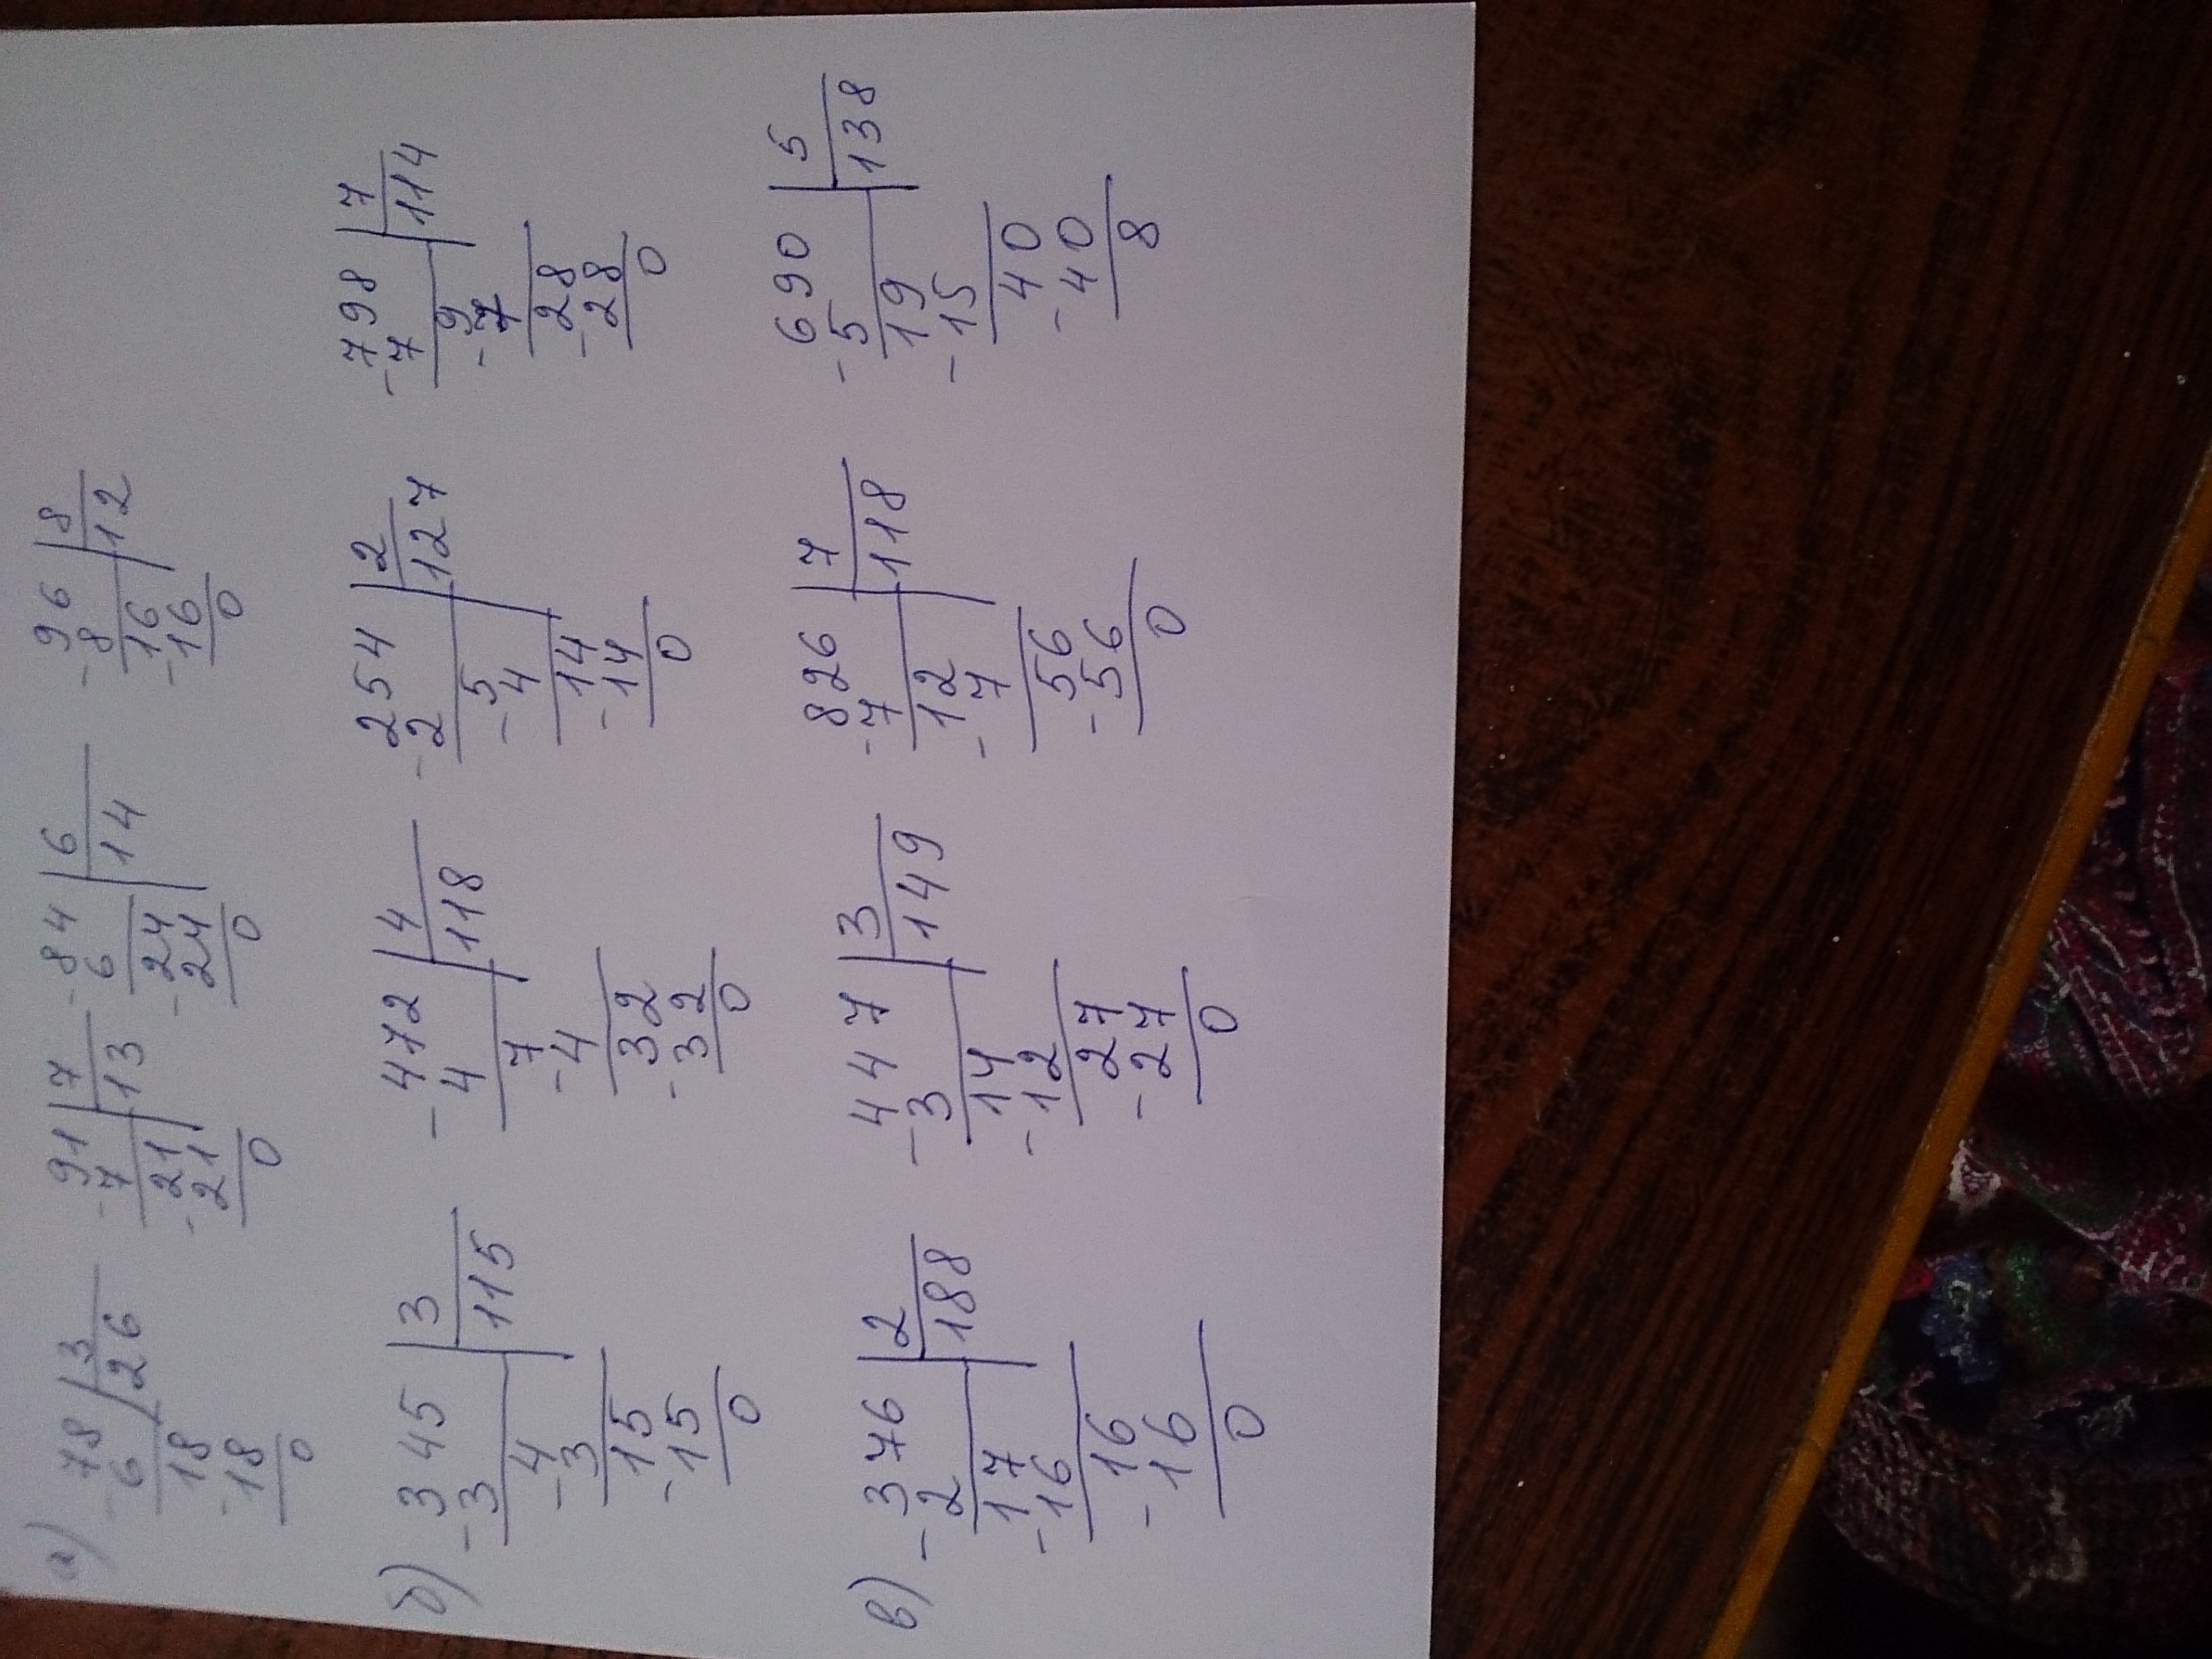 а) -78 |3 -91 |7 -84 |6 -96 |8
6 |26 7 |13 6 |14 8 |12
18 21 24 16
-18 -21 -24 -16
0 0 0 0
б) -345 |3 -472 |4 -254 |2 -798 |7
3 |115 4 |118 2 |127 7 |114
-4 -7 -5 -9
3 4 4 7
-15 -32 -14 -28
15 32 14 28
0 0 0 0
в) -376 |2 -447 |3 -826 |7 -690 |5
2 |188 3 |149 7 |118 5 |138
-17 -14 -12 -19
16 12 7 15
-16 -27 -56 -40
16 27 56 40
0 0 0 8